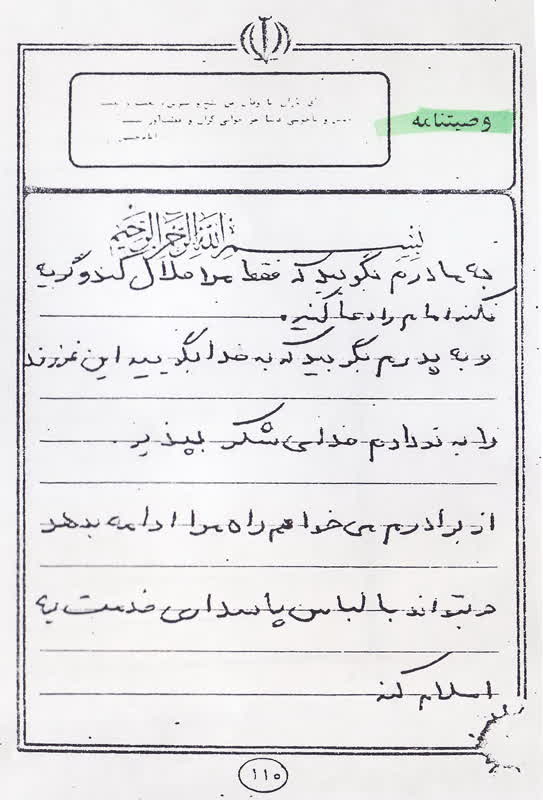 وصیتنامه
بسم الله الرحمن الرحیم
به مادرم بگویید که فقط مرا حلال کند و گریه
نکند امام را دعا کنید.
و به پدرم بگویید که به خدا بگویید این فرزند
را به تو دادم خدایی شکر بپذیر.
از برادرم می خواهم راه مرا ادامه بدهد
و بتواند با لباس پاسداری خدمت به
اسلام کند
۱۱۰